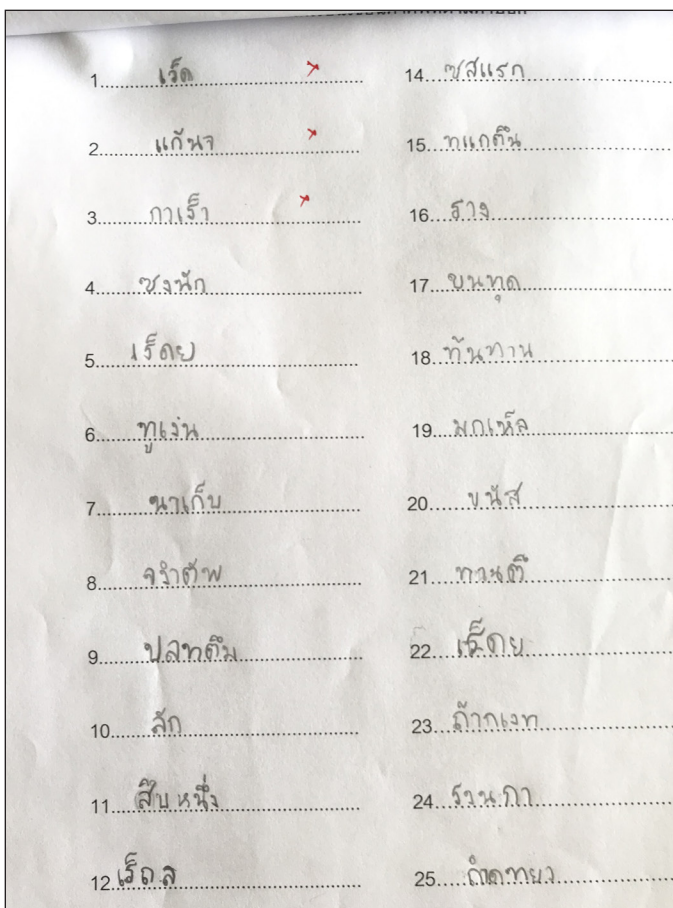 1. เว็ด
2. แก้นจ
3. กาเร็า
4. ซงนัก
5. เร็ดย
6. ทูเง่น
7. นาเก็บ
8. จรำตัพ
9. ปลทตึม
10. ลัก
11. สืบหนึ่ง
12. เร็ถล
14. ซสแรก
15. ทแกตึน
16. ราง
17. ขนทุด
18. ทันทาน
19. มกเห้ล
20. ขนัส
21. ทานตี
22. เร็ดย
23. ถ้ากเงท
24. รวนกา
25. ถ้าดทยว